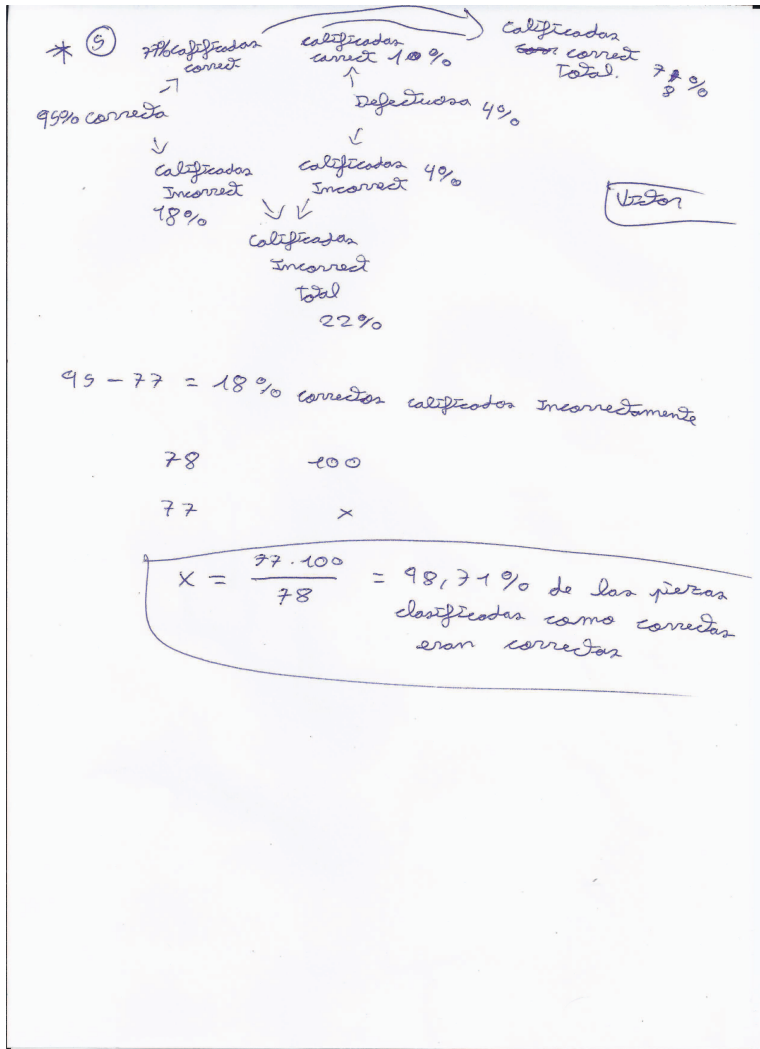 * 5
77% calificadas correct
calificadas correct 10%
calificadas correct Total. 78%
95% correcta
Defectuosa 4%
calificadas Incorrect 18%
calificadas Incorrect 4%
Victor
calificadas
Incorrect
total
22%
95 - 77 = 18% correctos calificados Incorrectamente
78 100
77 x
x = 77 · 100 / 78 = 98,71% de las piezas
clasificadas como correctas
eran correctas